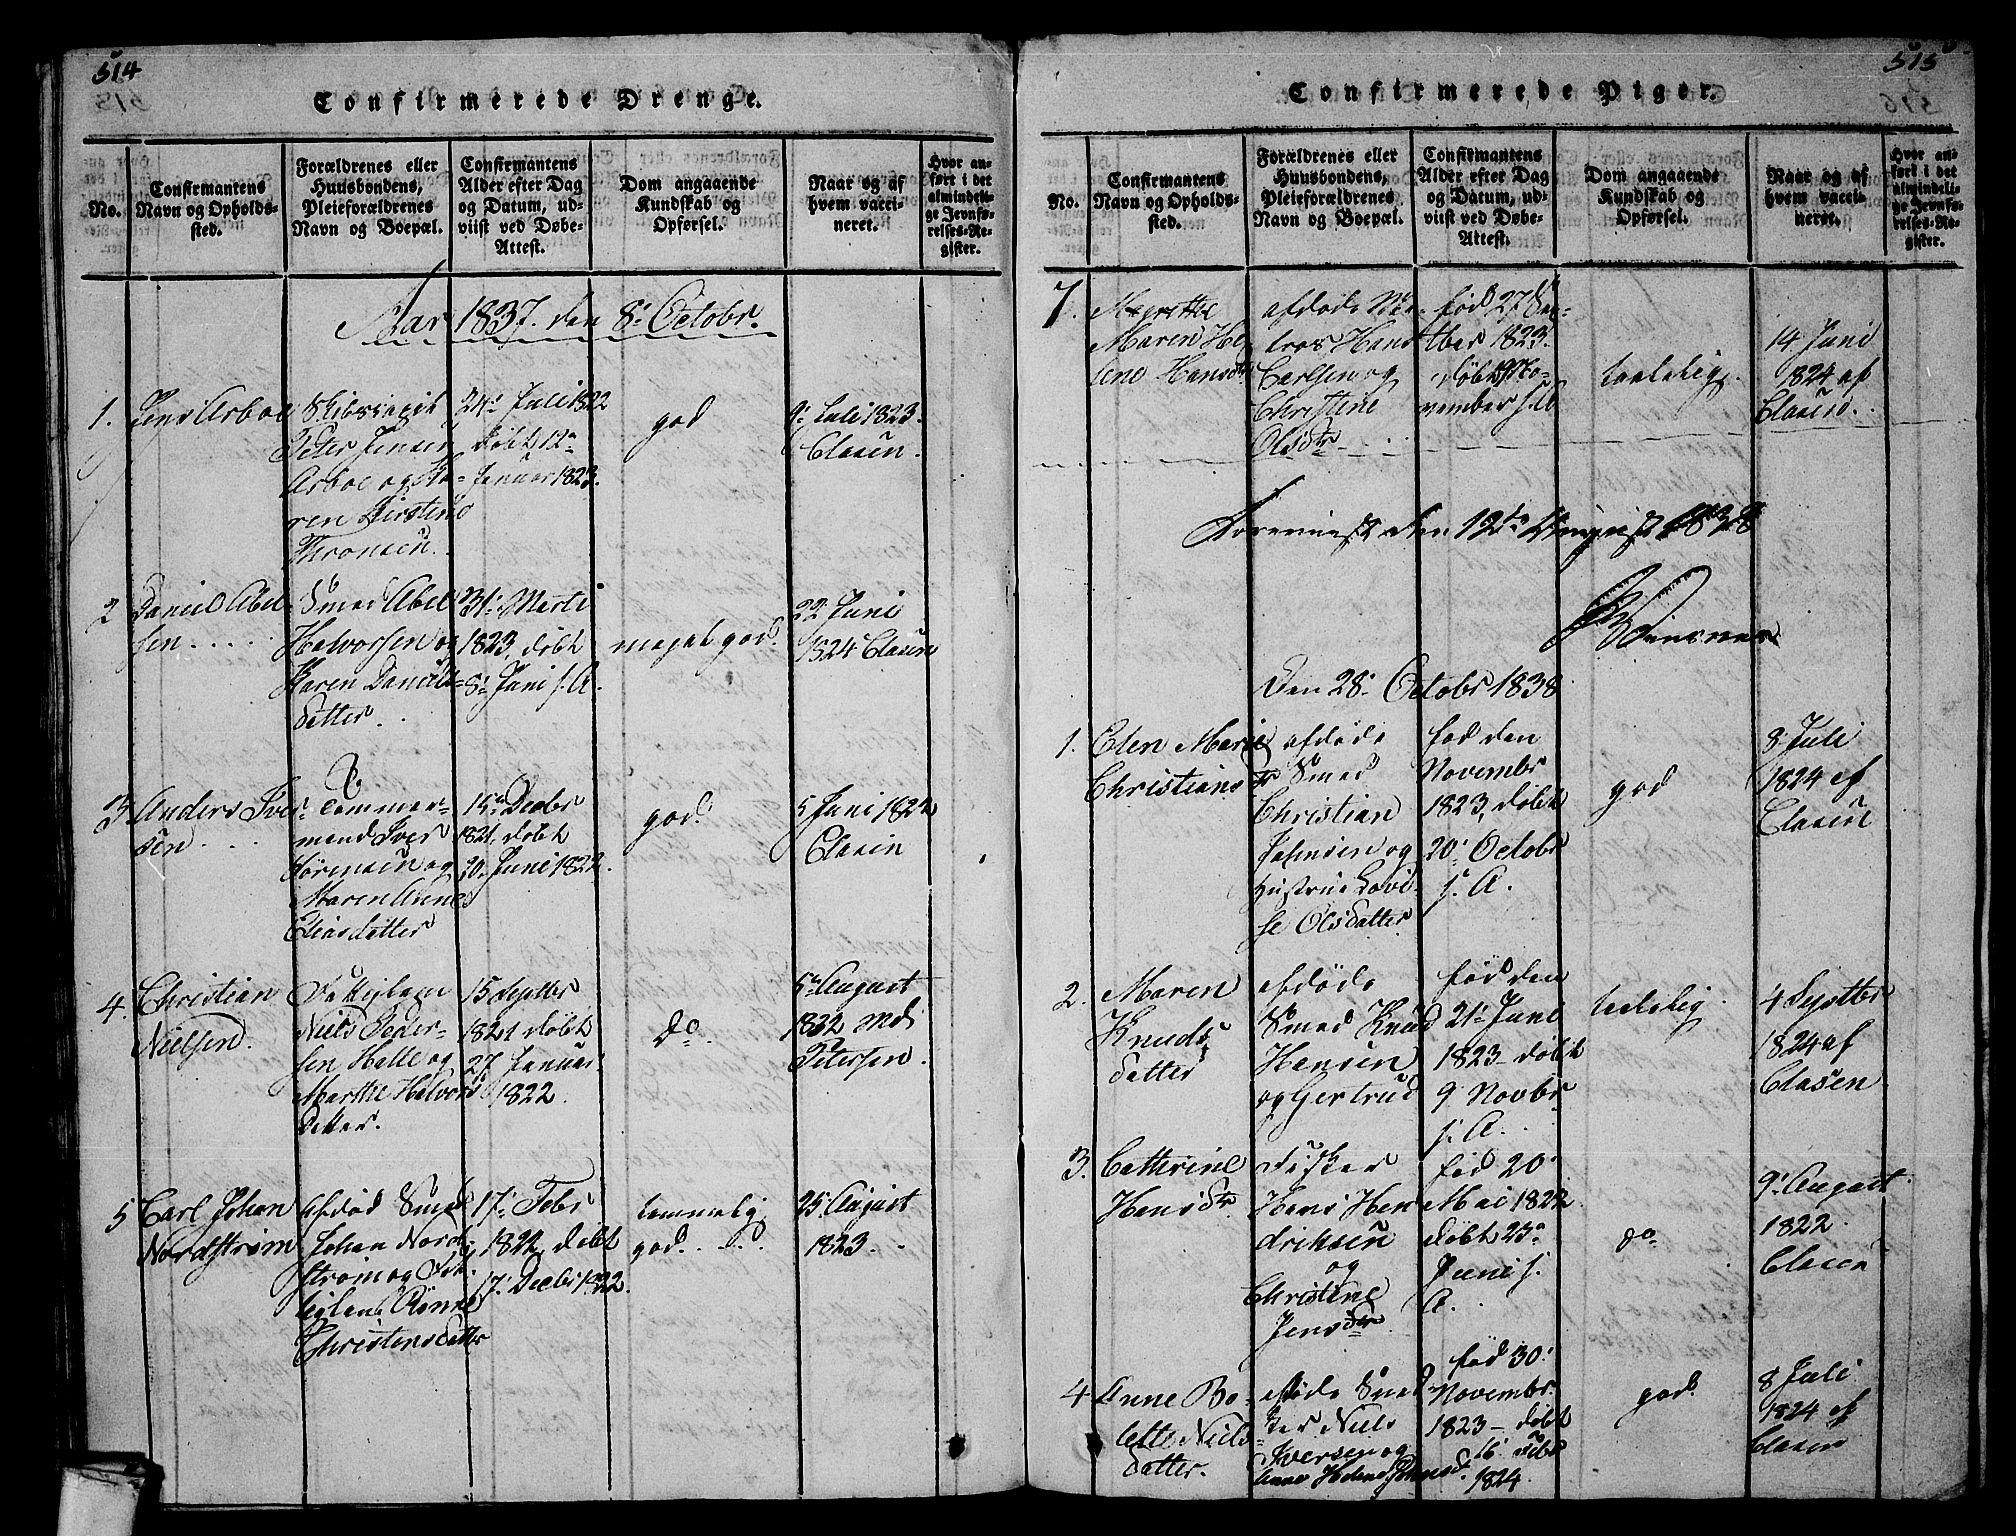 514
Confirmerede Drenge.
No.
Confirmantens
Navn og Opholds-
sted.
Forældrenes eller
Huusbondens,
Pleieforældrenes
Navn og Boepæl.
Confirmantens
Alder efter Dag
og Datum, ud-
viist ved Døbe-
Attest.
Dom angaaende
Kundskab og
Opførsel.
Naar og af
hvem vacci-
neret.
Hvor an-
ført i det
almindeli-
ge Jevnfø-
relses-Re-
gister.
Aar 1837. den 8de Octobr.
1.
Jens Arboe
Peter Jensen
Arboe og Ka-
ren Kirstine
Thronsen.
24de Juli 1822
døbt 12te
Januar 1823.
god
9de Juli 1823.
Clasen.
2
Daniel Abel-
sen . . . .
Smed Abel
Halvorsen og
Karen Daniels-
datter.
31te Marti
1823, døbt
8de Juni s. A.
meget god.
22 Juni
1824 Clasen
3.
Anders Iver-
sen . . .
Tømmer-
mand Iver
Sørensen og
Maren Anne
Eliasdatter
15de Decbr
1821, døbt
20. Juni 1822.
god.
5 Juni 1822
Clasen
4
Christian
Nielsen.
Niels Peder-
sen Halle og
Marthe Halvors
datter.
15 Septbr
1821 døbt
27 Januar
1822.
do.
5te August
1822 Md
Petersen.
5
Carl Johan
Nordstrøm
Afdød Smed
Johan Nord-
strøm og
Rønne
Christensdatter
17de Febr
1822, døbt
17de Decbr 1822.
temmelig
god. . .
25 August
1823. .
515
Confirmerede Piger.
No.
Confirmantens
Navn og Opholds-
sted.
Forældrenes eller
Huusbondens,
Pleieforældrenes
Navn og Boepæl.
Confirmantens
Alder efter Dag
og Datum, ud-
viist ved Døbe-
Attest.
Dom angaaende
Kundskab og
Opførsel.
Naar og af
hvem vacci-
neret.
Hvor an-
ført i det
almindeli-
ge Jevnfø-
relses-Re-
gister.
7.
Maren He-
lene Hansdtr
afdøde Ma-
tros Hans
Carlsen og
Christine
Olsdtr
fød 27 Sep-
tber 1823.
døbt No-
vember s. A
taalelig.
14 Juni
1824 af
Clasen.
Foreviist den 12te August 1838
Den 28de Octobr 1838
1.
Elen Marie
Christiansdtr
afdøde
Smed
Christian
Johnsen og
Hustrue Lovi-
se Olsdatter
fød den
Novembr
1823, døbt
20de Octobr
s. A.
god
8 Juli
1824 af
Clasen
2.
Maren
Knuds
datter
afdøde
Smed Knud
Hansen
og Gertrud
fød den
21de Juni
1823 - døbt
9 Novbr
s. A.
taalelig.
4 Septbr
1824 af
Clasen
3.
Cathrine
Hansdtr
Fisker
Hans Hen
driksen
og
Christine
Jensdtr
fød 20de
Mai 1822
døbt 23de
Juni s.
A.
do
9de August
1822.
Clasen
4
Anne Bo-
lette Niels
datter.
afdøde Smed
Niels
Iversen og
Anne Helene
fød 30de
Novembr.
1823 - døbt
16 Febr
1824.
god.
8 Juli
1824 af
Clasen